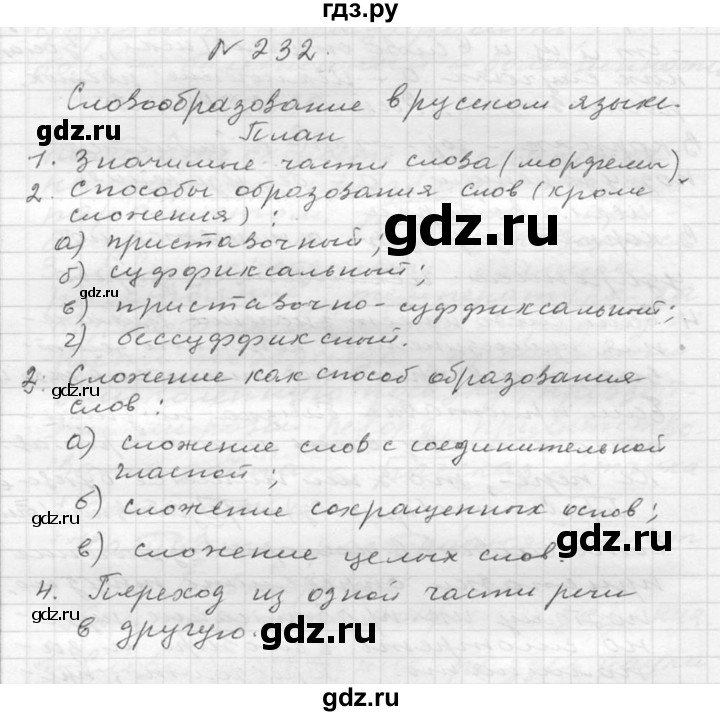 гдз.ру
N 232.
Словообразование в русском языке.
gdz.ru
План
1. Значимые части слова (морфемы).
2. Способы образования слов (кроме
сложения) :
gdz.ru
а) приставочный;
б) суффиксальный;
gdz.ru
в) приставочно-суффиксальный;
г) бессуффиксный.
3. Сложение как способ образования
слов :
gdz.ru
а) сложение слов с соединительной
гласной;
б) сложение сокращенных основ;
gdz.ru
в) сложение целых слов.
gdz.ru
4. Переход из одной части речи
в другую.
gdz.ru
gdz.ru